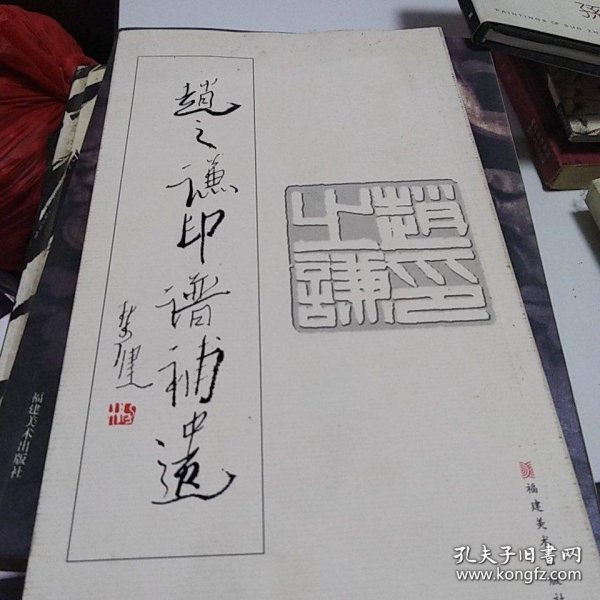 趙之謙印譜補遺
趙之謙印
福建美术出版社
福建美术出版社
PAINTINGS OF SUN
孔夫子旧书网
www.kongfz.com